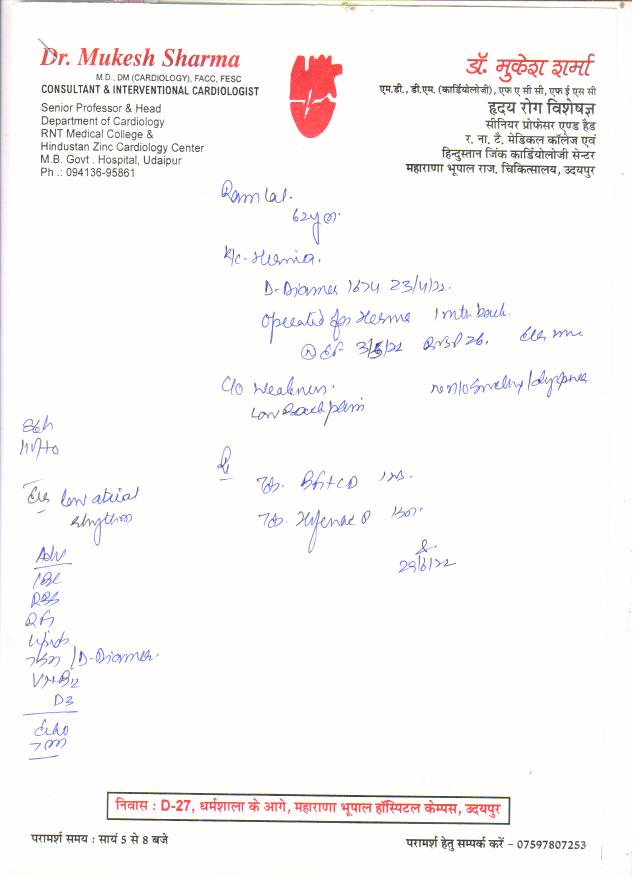 Dr. Mukesh Sharma
M.D., DM (CARDIOLOGY), FACC, FESC
CONSULTANT & INTERVENTIONAL CARDIOLOGIST
Senior Professor & Head
Department of Cardiology
RNT Medical College &
Hindustan Zinc Cardiology Center
M.B. Govt . Hospital, Udaipur
Ph .: 094136-95861
डॉ. मुकेश शर्मा
एम.डी., डी.एम. (कार्डियोलॉजी), एफ ए सी सी, एफ ई एस सी
हृदय रोग विशेषज्ञ
सीनियर प्रोफेसर एण्ड हैड
र. ना. टै. मेडिकल कॉलेज एवं
हिन्दुस्तान जिंक कार्डियोलॉजी सेन्टर
महाराणा भूपाल राज. चिकित्सालय, उदयपुर
Ram Lal.
62y
K/c- Hernia.
D-Diamer 1674 23/4/22.
Operated for Hernia 1 mth back.
C/O Weakness.
Low Back pain
86/m
Low atrial
rhythm
Tab.
Tab.
29/6/22
Adv
CBC
RBS
Lipids
TSH /D-Diamer
Vit B12
D3
Echo
TMT
निवास : D-27, धर्मशाला के आगे, महाराणा भूपाल हॉस्पिटल केम्पस, उदयपुर
परामर्श समय : सायं 5 से 8 बजे
परामर्श हेतु सम्पर्क करें - 07597807253